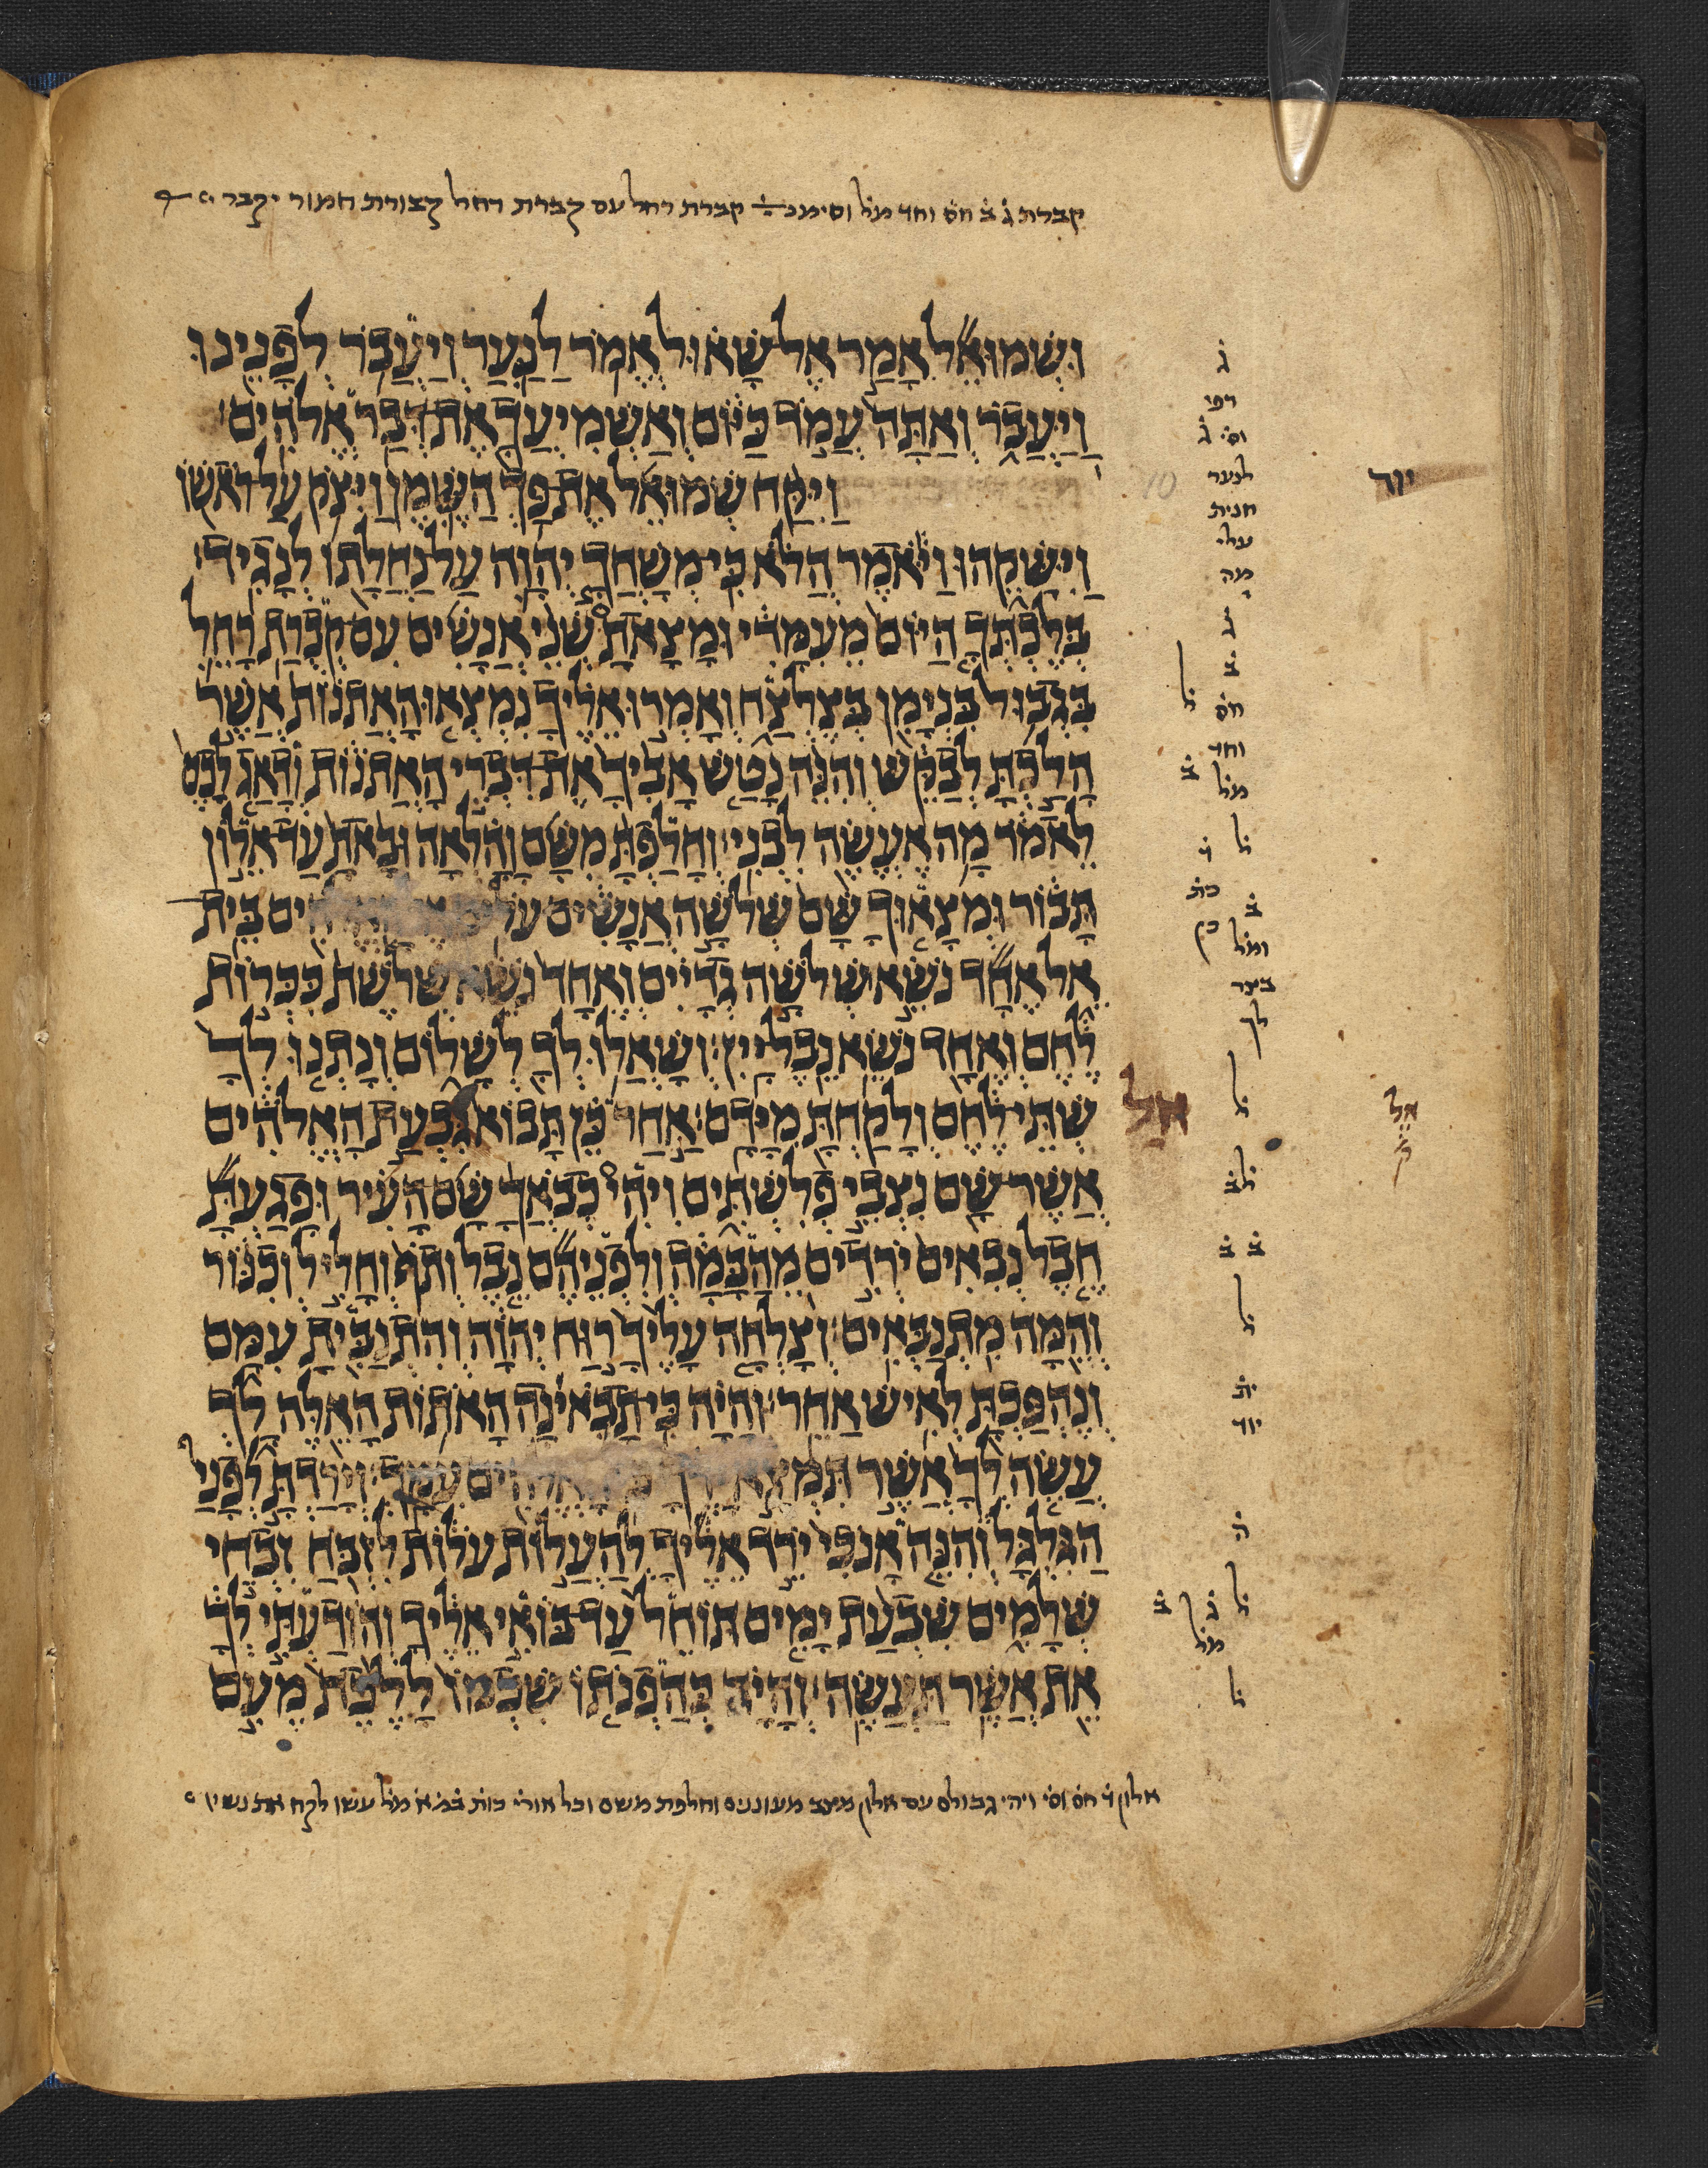 קברת ג ב חס וחד מל וסימנ קברת רחל עם קברת רחל קבורת חמור יקבר
וּשְׁמוּאֵל אָמַר אֶל שָׁאוּל אֱמֹר לַנַּעַר וְיַעֲבֹר לְפָנֵינוּ
וַיַּעֲבֹר וְאַתָּה עֲמֹד כַּיּוֹם וְאַשְׁמִיעֲךָ אֶת דְּבַר אֱלֹהִים׃
וַיִּקַּח שְׁמוּאֵל אֶת פַּךְ הַשֶּׁמֶן וַיִּצֹק עַל רֹאשׁוֹ
וַיִּשָּׁקֵהוּ וַיֹּאמֶר הֲלֹא כִּי מְשָׁחֲךָ יְהוָה עַל נַחֲלָתוֹ לְנָגִיד׃
בְּלֶכְתְּךָ הַיּוֹם מֵעִמָּדִי וּמָצָאתָ שְׁנֵי אֲנָשִׁים עִם קְבֻרַת רָחֵל
בִּגְבוּל בִּנְיָמִן בְּצֶלְצַח וְאָמְרוּ אֵלֶיךָ נִמְצְאוּ הָאֲתֹנוֹת אֲשֶׁר
הָלַכְתָּ לְבַקֵּשׁ וְהִנֵּה נָטַשׁ אָבִיךָ אֶת דִּבְרֵי הָאֲתֹנוֹת וְדָאַג לָכֶם
לֵאמֹר מָה אֶעֱשֶׂה לִבְנִי׃ וְחָלַפְתָּ מִשָּׁם וָהָלְאָה וּבָאתָ עַד אֵלוֹן
תָּבוֹר וּמְצָאוּךָ שָּׁם שְׁלֹשָׁה אֲנָשִׁים עֹלִים בֵּית
אֵל אֶחָד נֹשֵׂא שְׁלֹשָׁה גְדָיִים וְאֶחָד נֹשֵׂא שְׁלֹשֶׁת כִּכְּרוֹת
לֶחֶם וְאֶחָד נֹשֵׂא נֵבֶל יָיִן׃ וְשָׁאֲלוּ לְךָ לְשָׁלוֹם וְנָתְנוּ לְךָ
שְׁתֵּי לֶחֶם וְלָקַחְתָּ מִיָּדָם׃ אַחַר כֵּן תָּבוֹא גִּבְעַת הָאֱלֹהִים
אֲשֶׁר שָׁם נְצִבֵי פְלִשְׁתִּים וִיהִי כְבֹאֲךָ שָׁם הָעִיר וּפָגַעְתָּ
חֶבֶל נְבִאִים יֹרְדִים מֵהַבָּמָה וְלִפְנֵיהֶם נֵבֶל וְתֹף וְחָלִיל וְכִנּוֹר
וְהֵמָּה מִתְנַבְּאִים׃ וְצָלְחָה עָלֶיךָ רוּחַ יְהוָה וְהִתְנַבִּיתָ עִמָּם
וְנֶהְפַּכְתָּ לְאִישׁ אַחֵר׃ וְהָיָה כִּי תָבֹאינָה הָאֹתוֹת הָאֵלֶּה לָךְ
עֲשֵׂה לְךָ אֲשֶׁר תִּמְצָא עִמָּךְ׃ וְיָרַדְתָּ לְפָנַי
הַגִּלְגָּל וְהִנֵּה אָנֹכִי יֹרֵד אֵלֶיךָ לְהַעֲלוֹת עֹלוֹת לִזְבֹּחַ זִבְחֵי
שְׁלָמִים שִׁבְעַת יָמִים תּוֹחֵל עַד בּוֹאִי אֵלֶיךָ וְהוֹדַעְתִּי לְךָ
אֵת אֲשֶׁר תַּעֲשֶׂה׃ וְהָיָה כְּהַפְנֹתוֹ שִׁכְמוֹ לָלֶכֶת מֵעִם
ג
רפי
וס ג
לנער
חנית
עלי
מה
ג
ב
חס
וחד
מל
ב
ל
ד
כת
ב
ומל
ל
לב
ב ב
ל
ית
יוד
ה
ל
ג
ב
מל
ל
10
יוד
אל
אֵל
ק
אלון ד חס וסי ויהי גבולם עם אלון מצב מעוננים וחלפת משם וכל אורי כות במא מל עשו לקח את נשיו